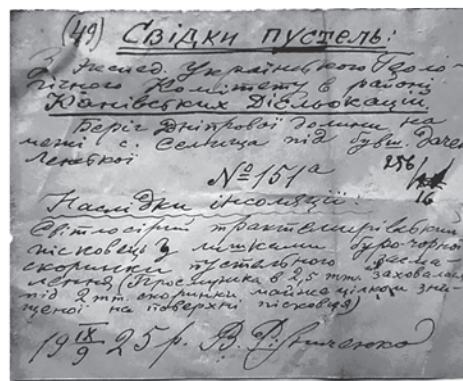 (49) Свідки пустель:
З експед. Українського Геоло-
гічного Комітету в районі
Канівських Дісльокацій.
Беріг Дніпрової долини на
межі с. Селища під бувш. дачею
№ 151а 256/
16
Наслідки інсоляції:
Світлосірий трактемирівський
пісковець з лишками буро-чорної
скоринки пустельного зама-
лення (Просмужка в 2,5 mm. заховалася
під 2 mm. скоринки майже цілком зни-
щеної на поверхні пісковця)
19 IX/9 25 р. В. Різниченко